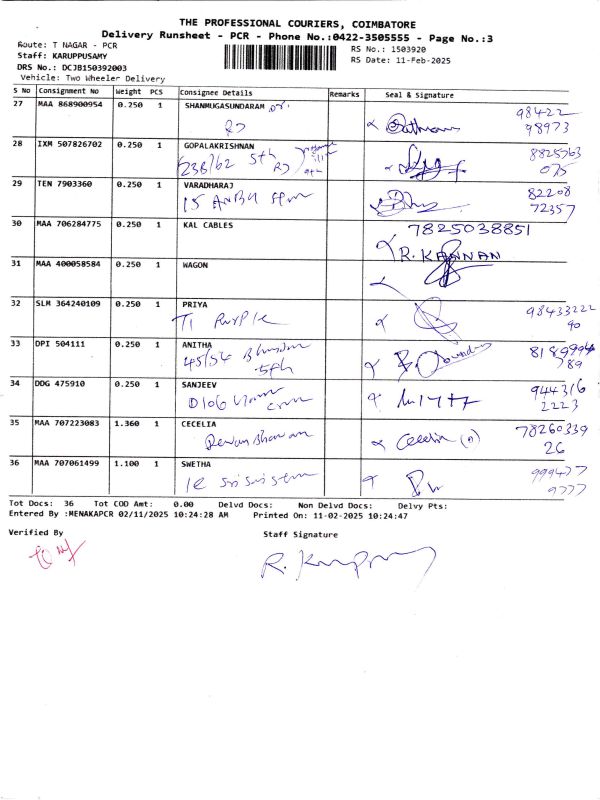 THE PROFESSIONAL COURIERS, COIMBATORE
Delivery Runsheet - PCR - Phone No.:0422-3505555 - Page No.:3
Route: T NAGAR - PCR
Staff: KARUPPUSAMY
DRS No.: DCJB150392003
Vehicle: Two Wheeler Delivery
RS No.: 1503920
RS Date: 11-Feb-2025
S No Consignment No Weight PCS Consignee Details Remarks Seal & Signature
27 MAA 868900954 0.250 1 SHANMUGASUNDARAM 98422
98973
28 IXM 507826702 0.250 1 GOPALAKRISHNAN 8825763
238/62 5th 075
29 TEN 7903360 0.250 1 VARADHARAJ 82208
15 72357
30 MAA 706284775 0.250 1 KAL CABLES 7825038851
R. KANNAN
31 MAA 400058584 0.250 1 WAGON
32 SLM 364240109 0.250 1 PRIYA 98433222
T1 Purple 90
33 DPI 504111 0.250 1 ANITHA 8189994
45/54 5th 789
34 DDG 475910 0.250 1 SANJEEV 944316
D106 2223
35 MAA 707223083 1.360 1 CECELIA 78260339
Cecelia 26
36 MAA 707061499 1.100 1 SWETHA 999477
9777
Tot Docs: 36 Tot COD Amt: 0.00 Delvd Docs: Non Delvd Docs: Delvy Pts:
Entered By :MENAKAPCR 02/11/2025 10:24:28 AM Printed On: 11-02-2025 10:24:47
Verified By Staff Signature